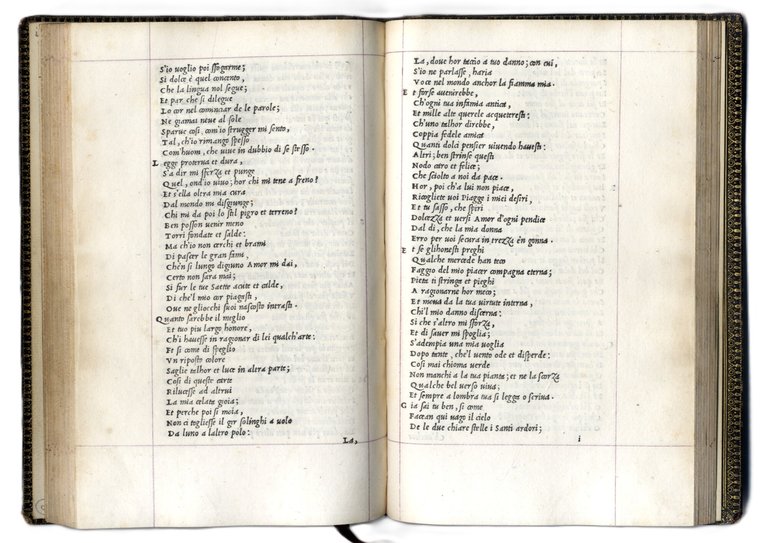 S'io voglio poi sfogarme;
Si dolce è quel concento,
Che la lingua nol segue;
Et par che si dilegue
Lo cor nel cominciar de le parole;
Ne giamai neue al sole
Sparue cosi, com'io strugger mi sento,
Tal, ch'io rimango spesso
Com'huom, che viue in dubbio di se stesso.
Legge proterua et dura,
S'a dir mi sferza et punge
Quel, ond'io viuo; hor chi mi tene a freno?
Et s'ella oltra mia cura
Dal mondo mi disgiunge;
Chi mi da poi lo stil pigro et terreno?
Ben posson uenir meno
Torri fondate et salde:
Ma ch'io non cerchi et brami
Di pascer le gran fami,
Che'n si lungo digiuno Amor mi dai,
Certo non sara mai;
Si fur le tue Saette acute et calde,
Di che'l mio cor piagasti,
Oue ne gliocchi suoi nascosto intrasti.
Quanto sarebbe il meglio
Et tuo piu largo honore,
Ch'i hauesse in ragionar di lei qualch'arte:
Et si come di speglio
Vn riposto colore
Saglie talhor et luce in altra parte;
Cosi di queste carte
Rilucesse ad altrui
La mia celata gioia;
Et perche poi si moia,
Non ci togliesse il gir solinghi a uolo
Da luno a laltro polo:
La,
La, doue hor teccio a tuo danno; con cui,
S'io ne parlasse, haria
Voce nel mondo anchor la fiamma mia.
Et forse auenirebbe,
Ch'ogni tua infamia antica,
Et mille alte querele acqueteresti:
Ch'uno talhor direbbe,
Coppia fedele amica
Quanti dolci pensier viuendo hauesti:
Altri; ben strinse questi
Nodo caro et felice;
Che sciolto a noi da pace.
Hor, poi ch'a lui non piace,
Ricogliete voi Piagge i miei desiri,
Et tu sasso, che spiri
Dolcezza et versi Amor d'ogni pendice
Dal di, che la mia donna
Erro per voi secura in trezza èn gonna.
Et se glihonesti preghi
Qualche mercede han teco
Faggio del mio piacer compagna eterna;
Pieta ti stringa et pieghi
A ragionarne hor meco;
Et moua da la tua virtute interna,
Chi'l mio danno discerna:
Si che s'altro mi sforza,
Et di sauer mi spoglia;
S'adempia una mia voglia
Dopo tante, che'l vento ode et disperde:
Cosi mai chioma verde
Non manchi a la tua pianta; et ne la scorza
Qualche bel verso viua;
Et sempre a lombra tua si legga o scriua.
Gia sai tu ben, si come
Facean qui uago il cielo
De le due chiare stelle i Santi ardori;
i